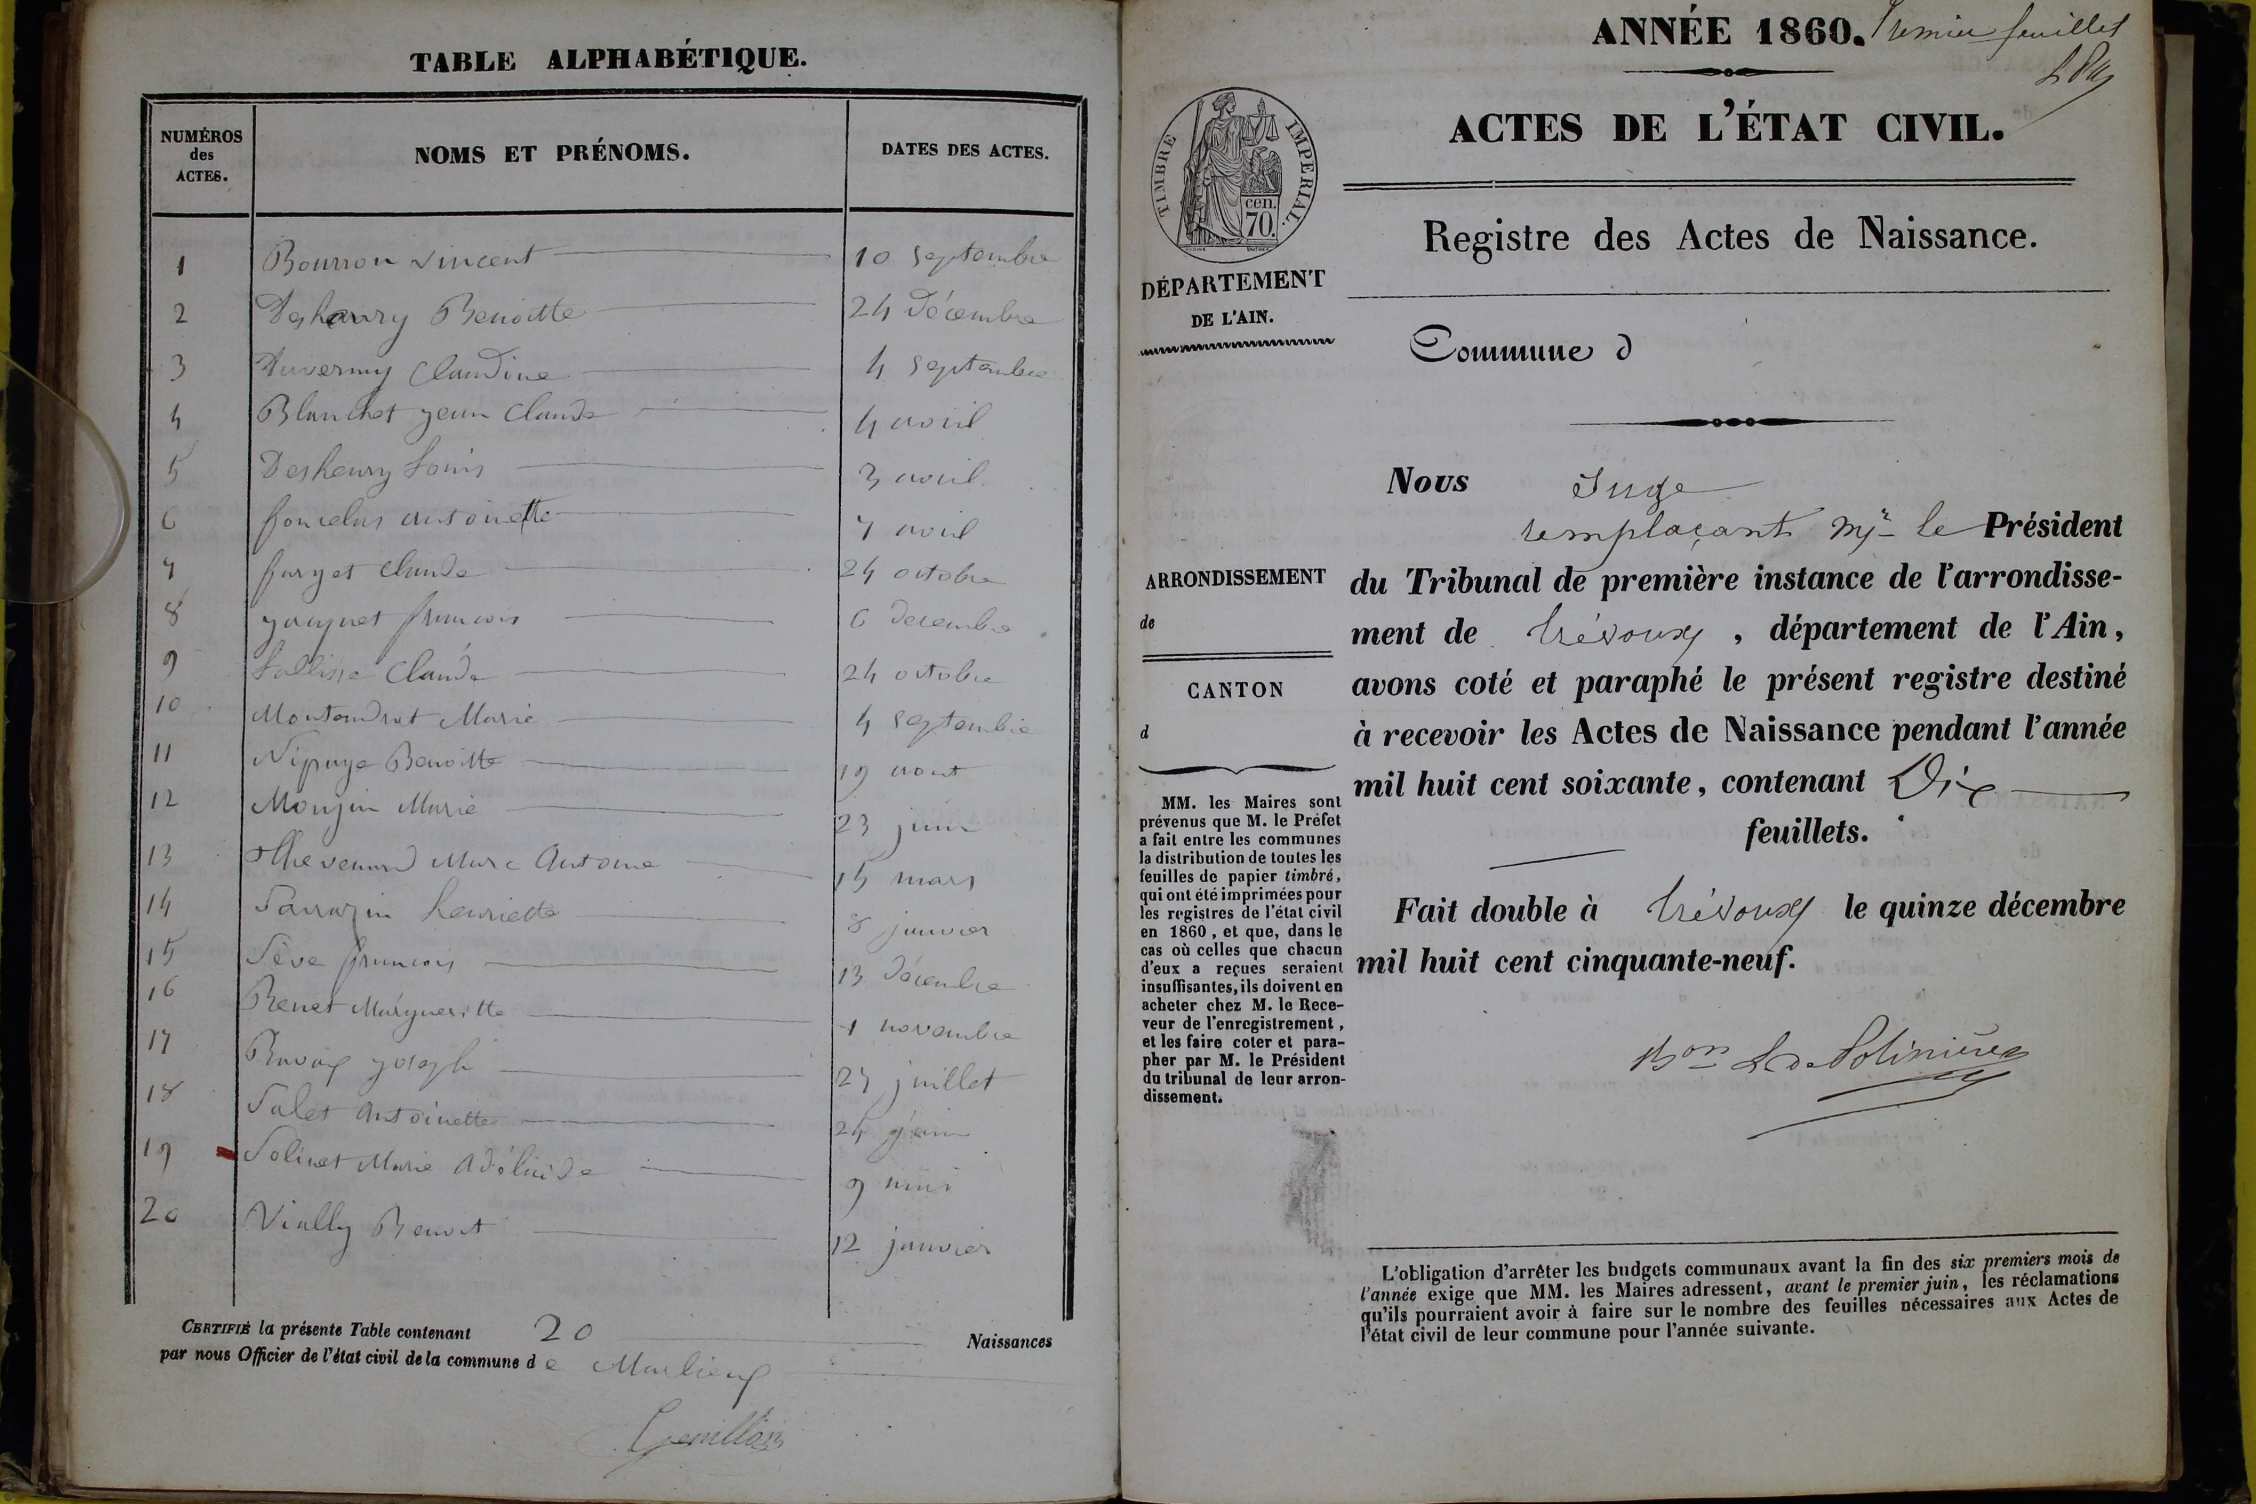 TABLE ALPHABÉTIQUE.
NUMÉROS des ACTES. NOMS ET PRÉNOMS. DATES DES ACTES.
1 Bourron Vincent 10 septembre
2 Deshenry Benoitte 24 Décembre
3 Duvernay Claudine 4 septembre
4 Blanchet jean Claude 4 avril
5 Deshenry Louis 3 avril
6 antoinette 7 avril
7 forget Claude 24 octobre
8 jacquet francois 6 decembre
9 Claude 24 octobre
10 Marie 4 septembre
11 Benoitte 19 aout
12 Monjin Marie 23 juin
13 thevenard Marc Antoine 15 mars
14 Sarrazin henriette 8 janvier
15 Sève francois 13 décembre
16 Renet Margueritte 1 novembre
17 Ravaix joseph 27 juillet
18 Salet antoinette 24 juin
19 Solinet Marie Adélaide 9 mai
20 Vially Benoit 12 janvier
CERTIFIÉ la présente Table contenant 20 Naissances
par nous Officier de l'état civil de la commune de Marlieux
ANNÉE 1860. Premier feuillet
ACTES DE L'ÉTAT CIVIL.
TIMBRE IMPERIAL.
cen.
70.
Registre des Actes de Naissance.
DÉPARTEMENT
DE L'AIN.
Commune d
Nous Juge
remplaçant Mr le Président
du Tribunal de première instance de l'arrondisse-
ment de Trévoux, département de l'Ain,
avons coté et paraphé le présent registre destiné
à recevoir les Actes de Naissance pendant l'année
mil huit cent soixante, contenant Dix
feuillets.
Fait double à Trévoux le quinze décembre
mil huit cent cinquante-neuf.
Bon L de Polinière
ARRONDISSEMENT
de
CANTON
d
MM. les Maires sont
prévenus que M. le Préfet
a fait entre les communes
la distribution de toutes les
feuilles de papier timbré,
qui ont été imprimées pour
les registres de l'état civil
en 1860, et que, dans le
cas où celles que chacun
d'eux a reçues seraient
insuffisantes, ils doivent en
acheter chez M. le Rece-
veur de l'enregistrement,
et les faire coter et para-
pher par M. le Président
du tribunal de leur arron-
dissement.
L'obligation d'arrêter les budgets communaux avant la fin des six premiers mois de
l'année exige que MM. les Maires adressent, avant le premier juin, les réclamations
qu'ils pourraient avoir à faire sur le nombre des feuilles nécessaires aux Actes de
l'état civil de leur commune pour l'année suivante.